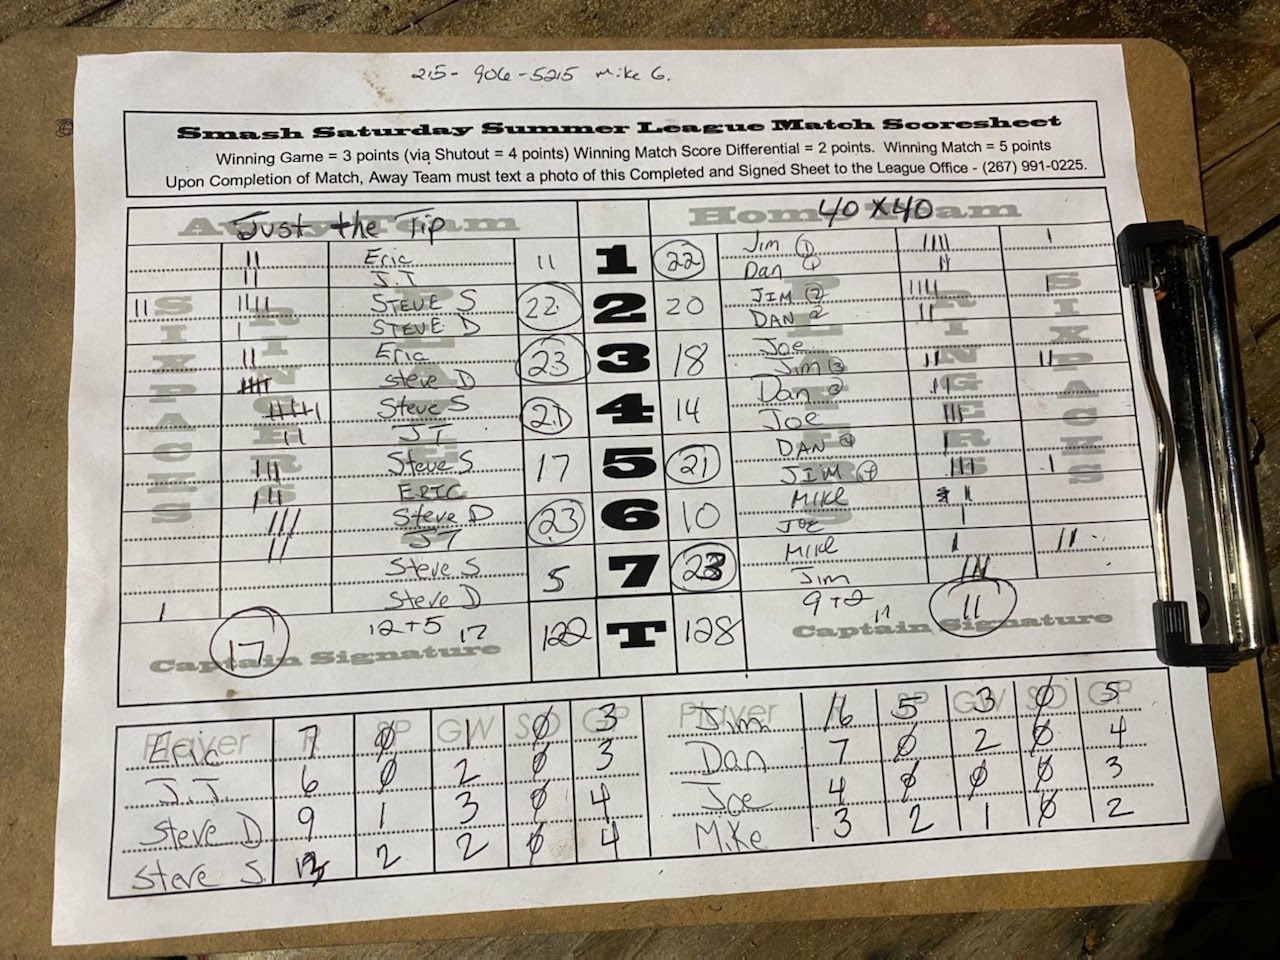 215-906-5215 Mike G.
Smash Saturday Summer League Match Scoresheet
Winning Game = 3 points (via Shutout = 4 points) Winning Match Score Differential = 2 points. Winning Match = 5 points
Upon Completion of Match, Away Team must text a photo of this Completed and Signed Sheet to the League Office - (267) 991-0225.
Away Team Just the Tip Home Team 40 X 40
SIXPACKS RINGERS PLAYERS PLAYERS RINGERS SIXPACKS
|| Eric 11 1 22 Jim 1 |||| |
|| J.T Dan 1 ||
|| |||| STEVE S 22 2 20 JIM 2 |||| |
| STEVE D DAN 2 ||
|| Eric 23 3 18 Joe
Steve D Jim 3 || ||
Steve S 21 4 14 Dan 3 ||
|| JT Joe |||
||| Steve S 17 5 21 DAN 4 |
||| ERIC JIM 4 ||| |
||| Steve D 23 6 10 MIKE ||
|| JT JOE |
Steve S 5 7 23 MIKE | ||
| Steve D Jim
17 12+5 17 122 T 128 9+2 11 11
Captain Signature Captain Signature
Player R SP GW SO GP Player R SP GW SO GP
Eric 7 0 1 0 3 Jim 16 5 3 0 5
J.T. 6 0 2 0 3 Dan 7 0 2 0 4
Steve D 9 1 3 0 4 Joe 4 0 0 0 3
Steve S. 2 2 0 4 Mike 3 2 1 0 2